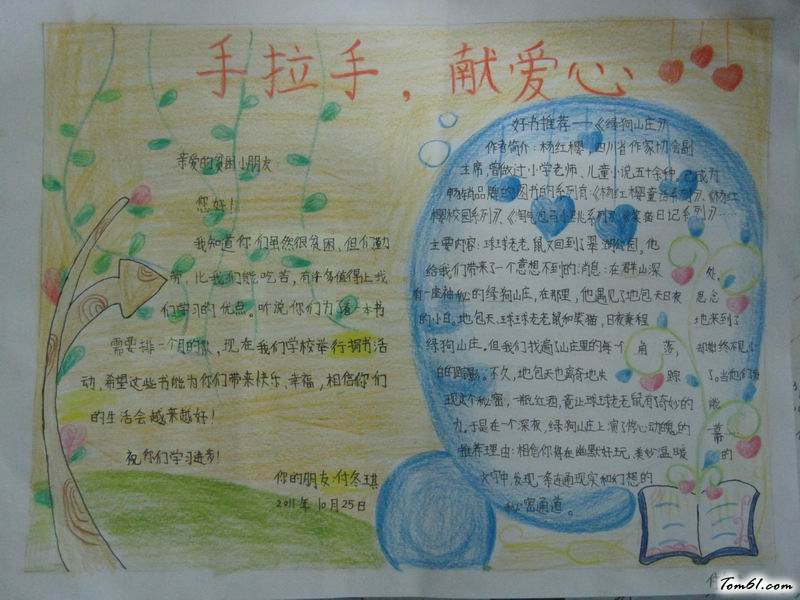 手拉手，献爱心
亲爱的贫困小朋友
您好！
我知道你们虽然很贫困，但们勤
劳，比我们能吃苦，有许多值得上我
们学习的优点。听说你们为了读一本书
需要排一个月的队，现在我们学校举行捐书活
动，希望这些书能为你们带来快乐、幸福，相信你们
的生活会越来越好！
祝你们学习进步！
你的朋友：付冬琪
2011年10月25日
好书推荐——《绿狗山庄》
作者简介：杨红樱，四川省作家协会副
主席，曾做过小学老师、儿童小说五十余种，已成为
畅销品牌的图书的系列有：《杨红樱童话系列》、《杨红
樱校园系列》、《淘气包马小跳系列》、《笑猫日记系列》……
主要内容：球球老老鼠又回到了翠湖公园，他
给我们带来了一个意想不到的消息：在群山深处，
有一座神秘的绿狗山庄，在那里，他遇见了地包天日夜思念
的小白。地包天、球球老老鼠和笑猫，日夜兼程地来到了
绿狗山庄。但我们找遍了山庄里的每个角落，却始终不见
小白的踪影。不久，地包天也离奇地失踪了。当他们发
现这个秘密，一瓶红酒，竟让球球老老鼠有了奇妙的能
力，于是在一个深夜，绿狗山庄上演了惊心动魄的一幕……
推荐理由：相信你将在幽默好玩、美妙温暖的
文字中，发现一条连通现实和幻想的
秘密通道。
Tom61.com